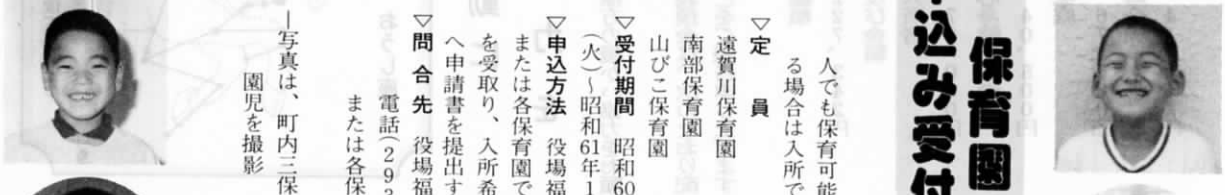 保育園
込み受付
人でも保育可能
る場合は入所で
▽定員
遠賀川保育園
南部保育園
山びこ保育園
▽受付期間 昭和60
(火)〜昭和61年1
▽申込方法 役場福
または各保育園で
を受取り、入所希
へ申請書を提出す
▽問合先 役場福
電話(293
または各保
―写真は、町内三保
園児を撮影